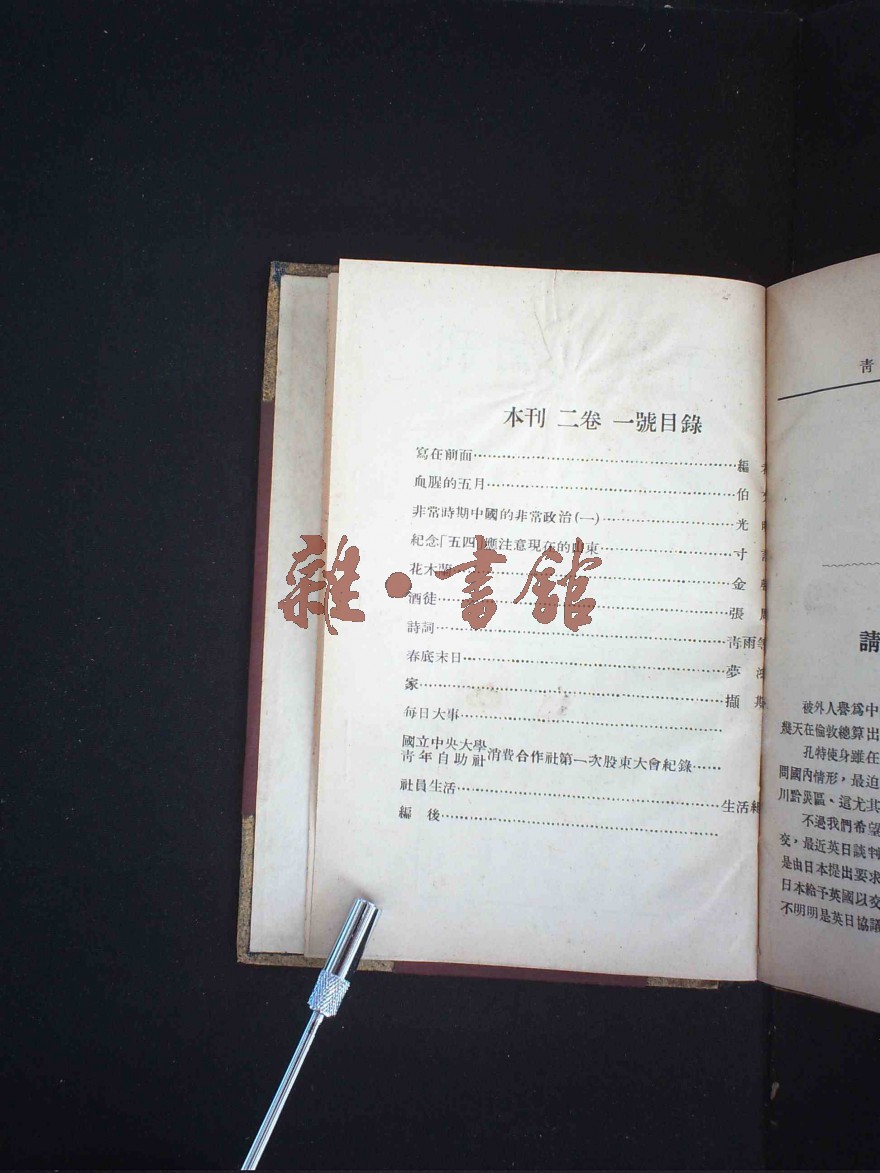 本刊 二卷 一號目錄
寫在前面……編
血腥的五月……伯
非常時期中國的非常政治(一)……光
紀念「五四」應注意現在的山東……寸
花木蘭……金
酒徒……張
詩詞……靑雨等
春底末日……夢
家……擷
每日大事……
國立中央大學
靑年自助社消費合作社第一次股東大會紀錄……
社員生活……生活
編 後……
雜·書館
靑
請
被外人譽爲中
幾天在倫敦總算出
孔特使身雖在
間國內情形，最迫
川黔災區、這尤其
不過我們希望
交，最近英日談判
是由日本提出要求
日本給予英國以交
不明明是英日協議